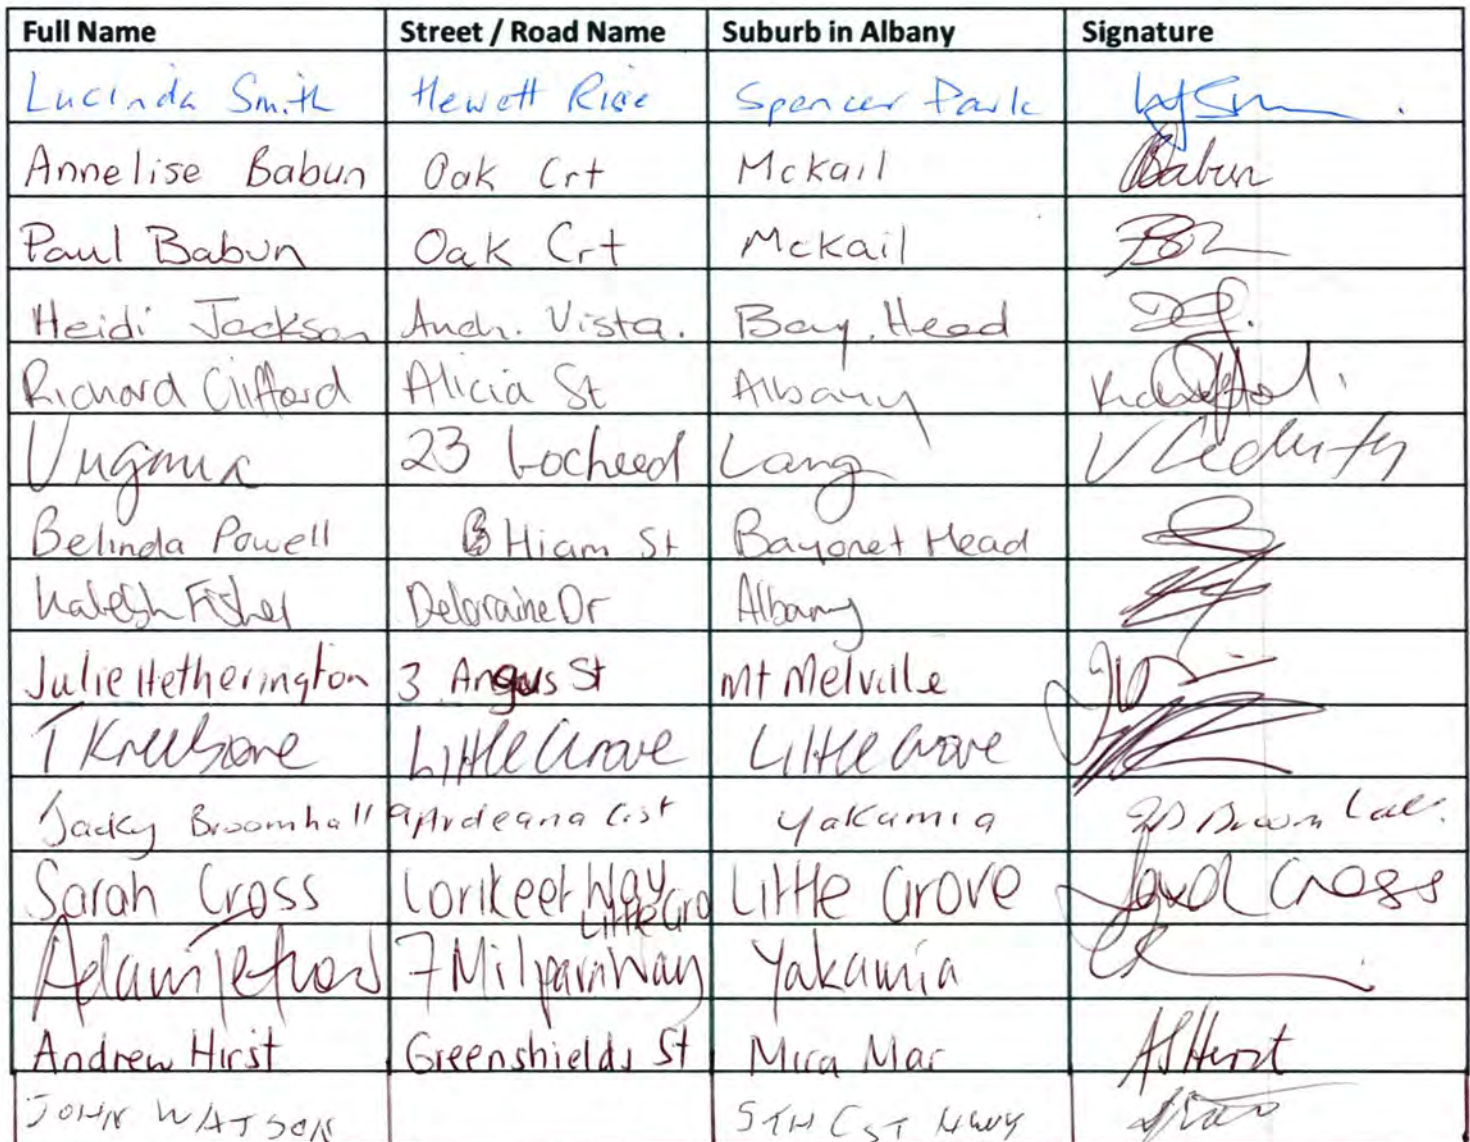 Full Name Street / Road Name Suburb in Albany Signature
Lucinda Smith Hewett Rise Spencer Park
Annelise Babun Oak Crt Mckail Babun
Paul Babun Oak Crt Mckail
Heidi Jackson Vista. Bay. Head
Richard Clifford Alicia St Albany
23 Locheed Lang
Belinda Powell Hiam St Bayonet Head
Fisher Deloraine Dr Albany
Julie Hetherington 3 Angus St Mt Melville
T Little Grove Little Grove
Jacky Broomhall 9 Ardeana Crst Yakamia
Sarah Cross Lorikeet Way Little Grove Cross
Little Gro
Adam 7 Milpara Way Yakamia
Andrew Hirst Greenshields St Mira Mar AJ Hirst
JOHN WATSON STH CST HWY